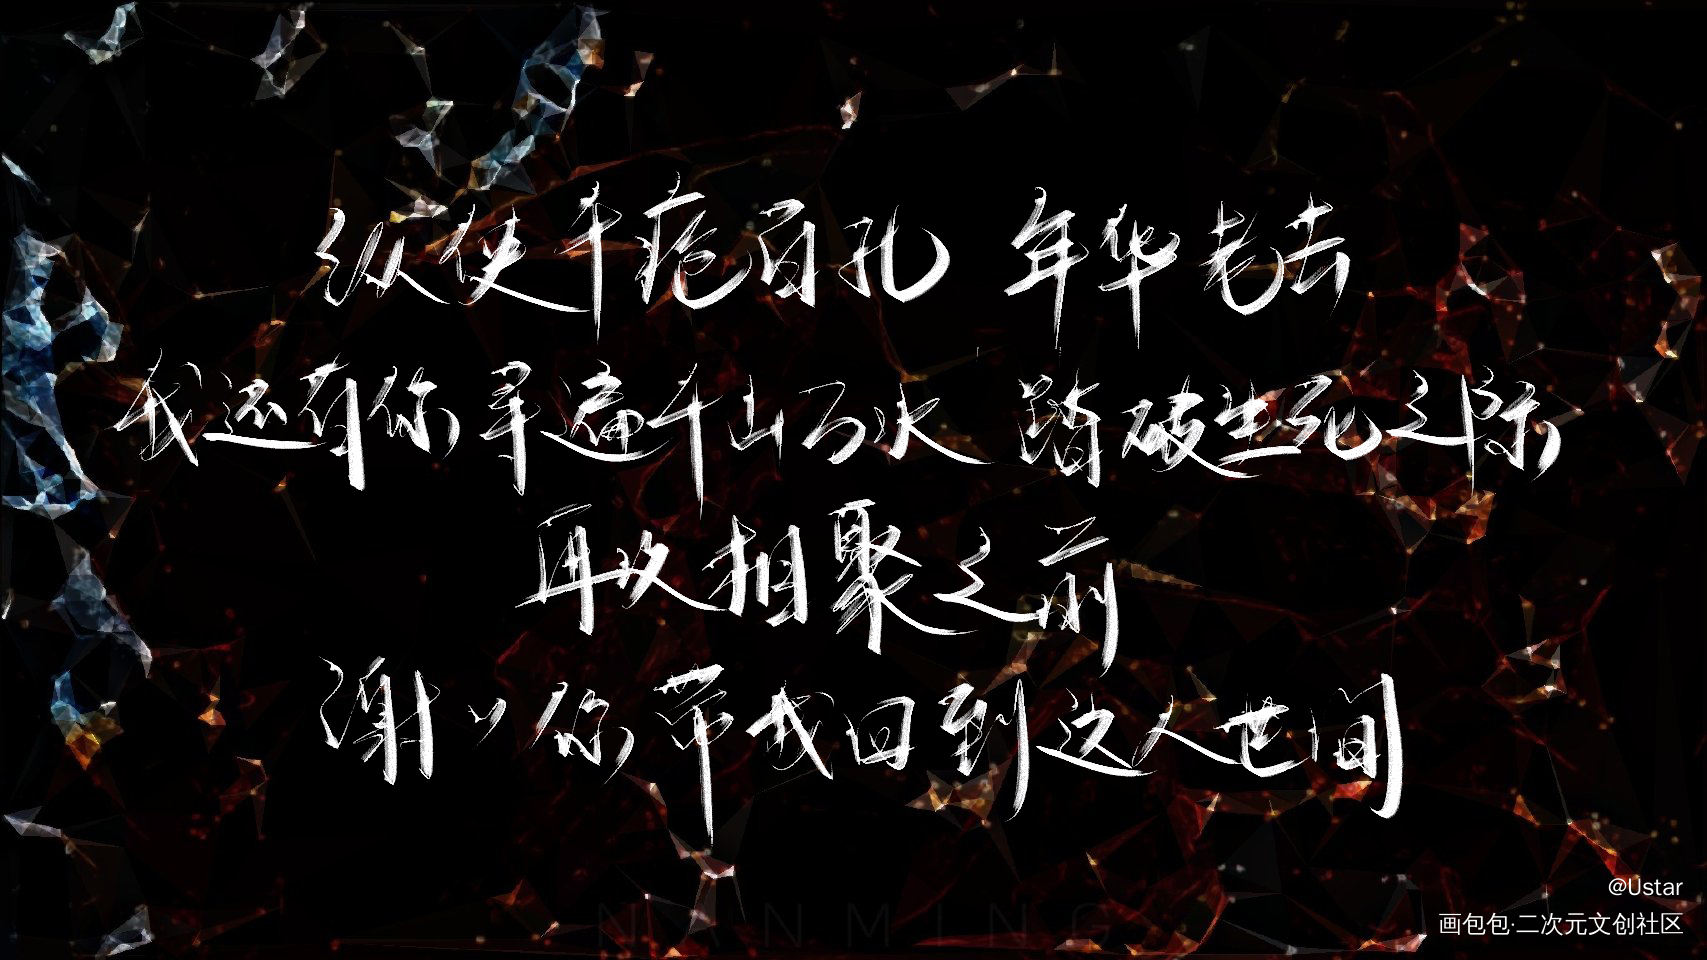 纵使千疮百孔 年华老去
我还有你寻遍千山万水 踏破生死之际
再次相聚之前
谢谢你带我回到这人世间
NANMING
@Ustar
画包包·二次元文创社区